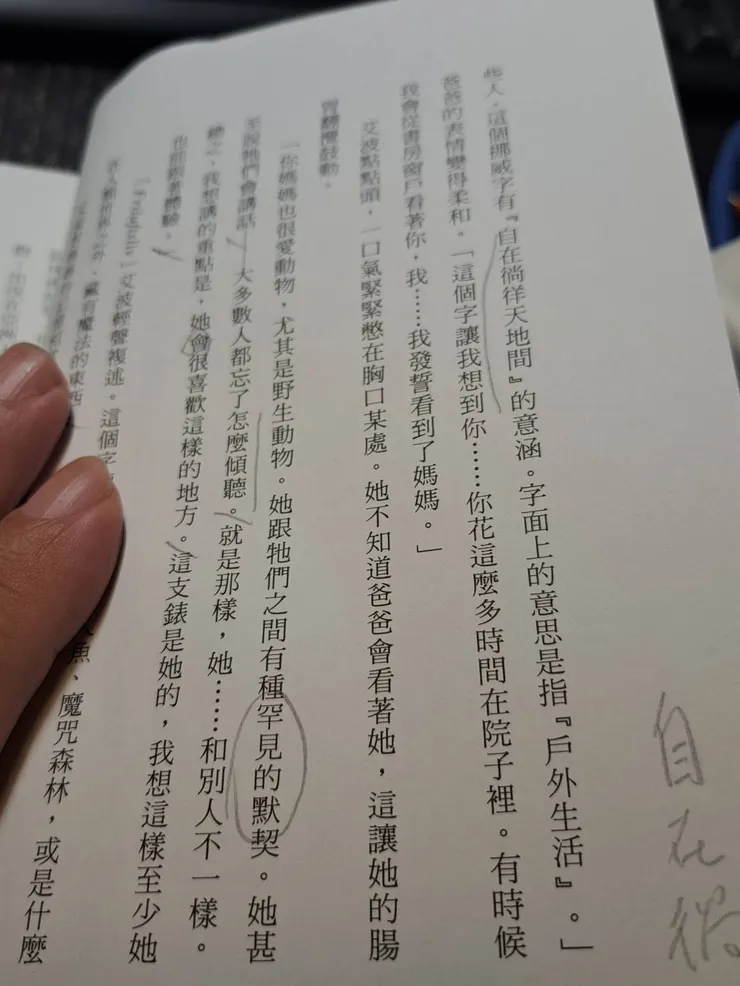 些人,這個挪威字有『自在徜徉天地間』的意涵。字面上的意思是指『戶外生活』。」
爸爸的表情變得柔和。「這個字讓我想到你……你花這麼多時間在院子裡。有時候
我會從書房窗戶看著你,我……我發誓看到了媽媽。」
艾波點點頭,一口氣緊緊憋在胸口某處。她不知道爸爸會看著她,這讓她的腸
胃翻攪鼓動。
「你媽媽也很愛動物,尤其是野生動物。她跟牠們之間有種罕見的默契。她甚
至說牠們會講話——大多數人都忘了怎麼傾聽。就是那樣,她……和別人不一樣。
總之,我想講的重點是,她會很喜歡這樣的地方。這支錶是她的,我想這樣至少她
也能跟著體驗。」
艾波輕聲複述。這個字
藏有魔法的東西
魚、魔咒森林,或是什麼
自在徜